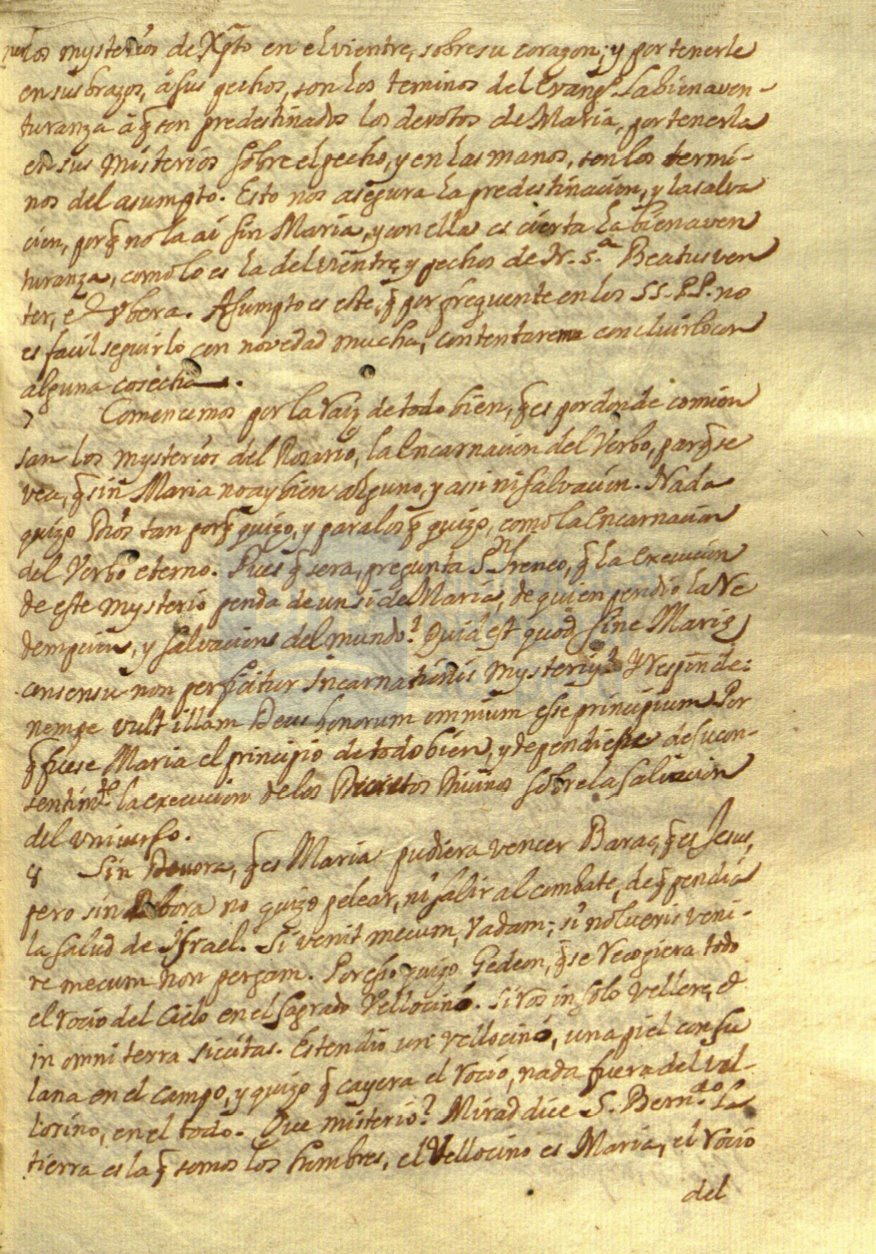 los mysterios de Xpto en el vientre, sobre su corazon; y por tenerle
en sus brazos, â sus pechos, son los terminos del Evangº. La bienaven-
turanza â q̃ son predestinados los devotos de Maria, por tenerla
en sus Misterios sobre el pecho, y en las manos, son los termi-
nos del asumpto. Esto nos asegura la predestinacion, y la salva
cion, porq̃ no la ai sin Maria, y con ella es cierta la bienaven
turanza, como lo es la del vientre, y pechos de N. S.ª Beatus ven
ter, et Vbera. Asumpto es este, q̃ por frequente en los SS. PP. no
es facil seguirlo con novedad mucha, contentareme concluirlo con
alguna cosecha.
7 Comencemos por la raiz de todo bien, q̃ es por donde comien
san los mysterios del Rosario, la Encarnacion del Verbo, para q̃ se
vea, q̃ sin Maria no ay bien alguno, y assi ni salvacion. Nada
quizo Dios tan porq̃ quizo, y para los q̃ quizo, como la Encarnacion
del Verbo eterno. Pues q̃ sera, pregunta Sn Ireneo, q̃ la execucion
de este mysterio penda de un si de Maria, de quien pendio la Re
dempcion, y salvacion del mundo? Quid est quod sine Marię
consensu non perficitur Incarnationis mysterium? Y responde:
nempe vult illam Deus bonorum omnium esse principium. Por
q̃ fuese Maria el principio de todo bien, y dependiese de su con-
sentimto la execucion de los Decretos Divinos sobre la salvacion
del universo.
8 Sin Devora, q̃ es Maria pudiera vencer Barac, q̃ es Jesus,
pero sin Debora no quizo pelear, ni salir al combate, de q̃ pendia
la salud de Israel. Si venit mecum, vadam; si nolueris veni-
re mecum non pergam. Por eso quizo Gedeon, q̃ se recogiera todo
el rocio del Cielo en el sagrado Vellocino. Si ros in solo vellere, et
in omni terra siccitas. Estendio un vellocino, una piel con su
lana en el campo, y quizo q̃ cayera el rocio, nada fuera del vel-
locino, en el todo. Que misterio? Mirad dice S. Bern.do La
tierra es la q̃ somos los hombres, el Vellocino es Maria, el rocio
del